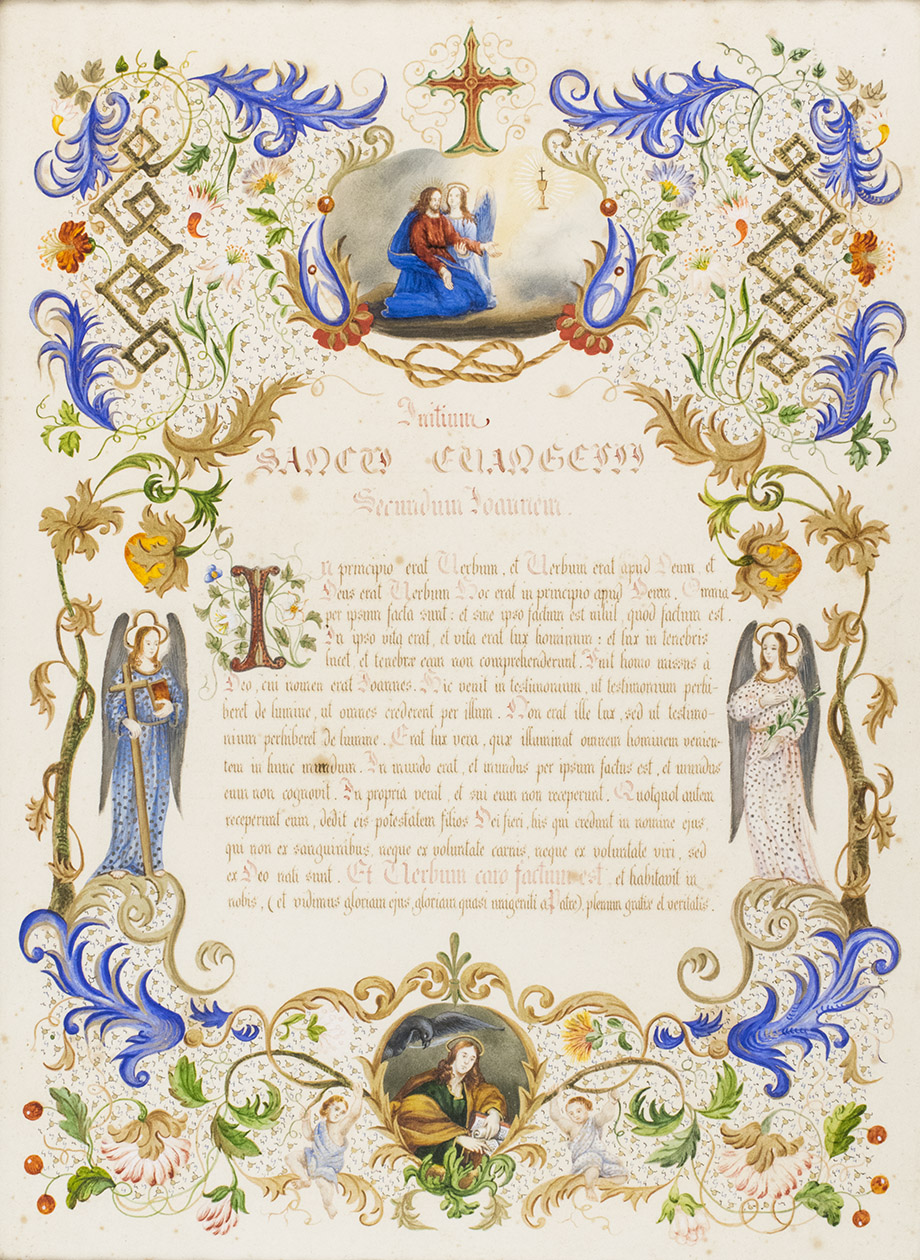 Initium
SANCTI EVANGELII
Secundum Ioannem.
In principio erat Verbum, et Verbum erat apud Deum, et
Deus erat Verbum. Hoc erat in principio apud Deum. Omnia
per ipsum facta sunt: et sine ipso factum est nihil, quod factum est.
In ipso vita erat, et vita erat lux hominum: et lux in tenebris
lucet, et tenebræ eam non comprehenderunt. Fuit homo missus à
Deo, cui nomen erat Ioannes. Hic venit in testimonium, ut testimonium perhi-
beret de lumine, ut omnes crederent per illum. Non erat ille lux, sed ut testimo-
nium perhiberet de lumine. Erat lux vera, quæ illuminat omnem hominem venien-
tem in hunc mundum. In mundo erat, et mundus per ipsum factus est, et mundus
eum non cognovit. In propria venit, et sui eum non receperunt. Quotquot autem
receperunt eum, dedit eis potestatem filios Dei fieri, his qui credunt in nomine ejus,
qui non ex sanguinibus, neque ex voluntate carnis, neque ex voluntate viri, sed
ex Deo nati sunt. Et Verbum caro factum est et habitavit in
nobis, (et vidimus gloriam ejus, gloriam quasi unigeniti a Patre), plenum gratiæ et veritatis.